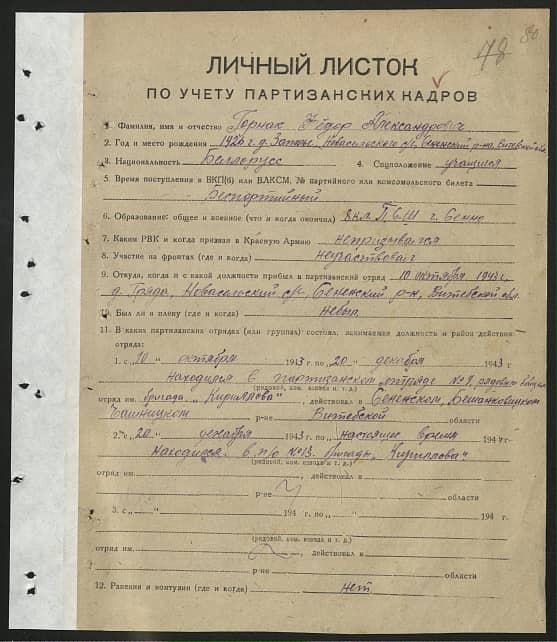 78 80
ЛИЧНЫЙ ЛИСТОК
ПО УЧЕТУ ПАРТИЗАНСКИХ КАДРОВ
1. Фамилия, имя и отчество Александрович
2. Год и место рождения 1926 г. д. Новосельского с/с, Сененский р-на,
3. Национальность Белорусс 4. Соцположение учащийся
5. Время поступления в ВКП(б) или ВЛКСМ, № партийного или комсомольского билета
Беспартийный
6. Образование: общее и военное (что и когда окончил) 8 кл. СШ г. Сенно
7. Каким РВК и когда призван в Красную Армию непризывался
8. Участие на фронтах (где и когда) неучаствовал
9. Откуда, когда и с какой должности прибыл в партизанский отряд 10 октября 1943 г.
д. Гряда, Новосельский с/с Сененский р-н, Витебской обл.
10. Был ли в плену (где и когда) небыл
11. В каких партизанских отрядах (или группах) состоял, занимаемая должность и район действия
отряда:
1. с „20" октября 1943 г. по „20" декабря 1943 г
находился в партизанском отряде рядовой
(рядовой, ком. взвода и т. д.)
отряд им. бригада „Кириллова", действовал в Сененском, Бешанковицком
Чашницком р-не Витебской области
2. с „20" декабря 1943 г. по „настоящее время 194 г.
находился в п/о №13 бригады „Кириллова"
(рядовой, ком. взвода и т. д.)
отряд им. , действовал в
р-не области
3. с „ " 194 г. по „ " 194 г.
(рядовой, ком. взвода и т. д.)
отряд им. , действовал в
р-не области
12. Ранения и контузии (где и когда) нет